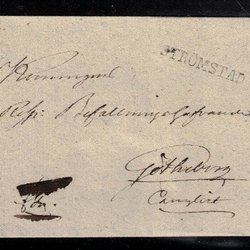 STRÖMSTAD
Konungens
Resp: Befallningshafvande
Götheborg
Canzliet